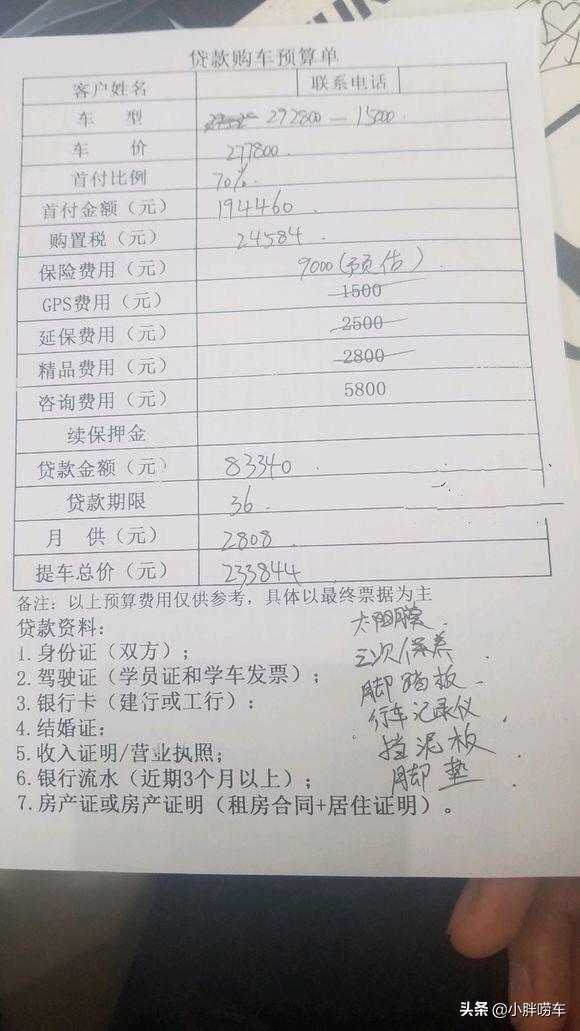 贷款购车预算单
客户姓名 联系电话
车 型 292800-15000.
车 价 277800.
首付比例 70%.
首付金额（元） 194460.
购置税（元） 24584.
保险费用（元） 9000(预估).
GPS费用（元） 1500
延保费用（元） 2500
精品费用（元） 2800
咨询费用（元） 5800
续保押金
贷款金额（元） 83340.
贷款期限 36.
月 供（元） 2808.
提车总价（元） 233844
备注：以上预算费用仅供参考，具体以最终票据为主
贷款资料：
1.身份证（双方）；
2.驾驶证（学员证和学车发票）；
3.银行卡（建行或工行）：
4.结婚证：
5.收入证明/营业执照；
6.银行流水（近期3个月以上）；
7.房产证或房产证明（租房合同+居住证明）。
太阳膜.
三次保养.
脚踏板.
行车记录仪
挡泥板
脚垫.
头条 @小胖唠车